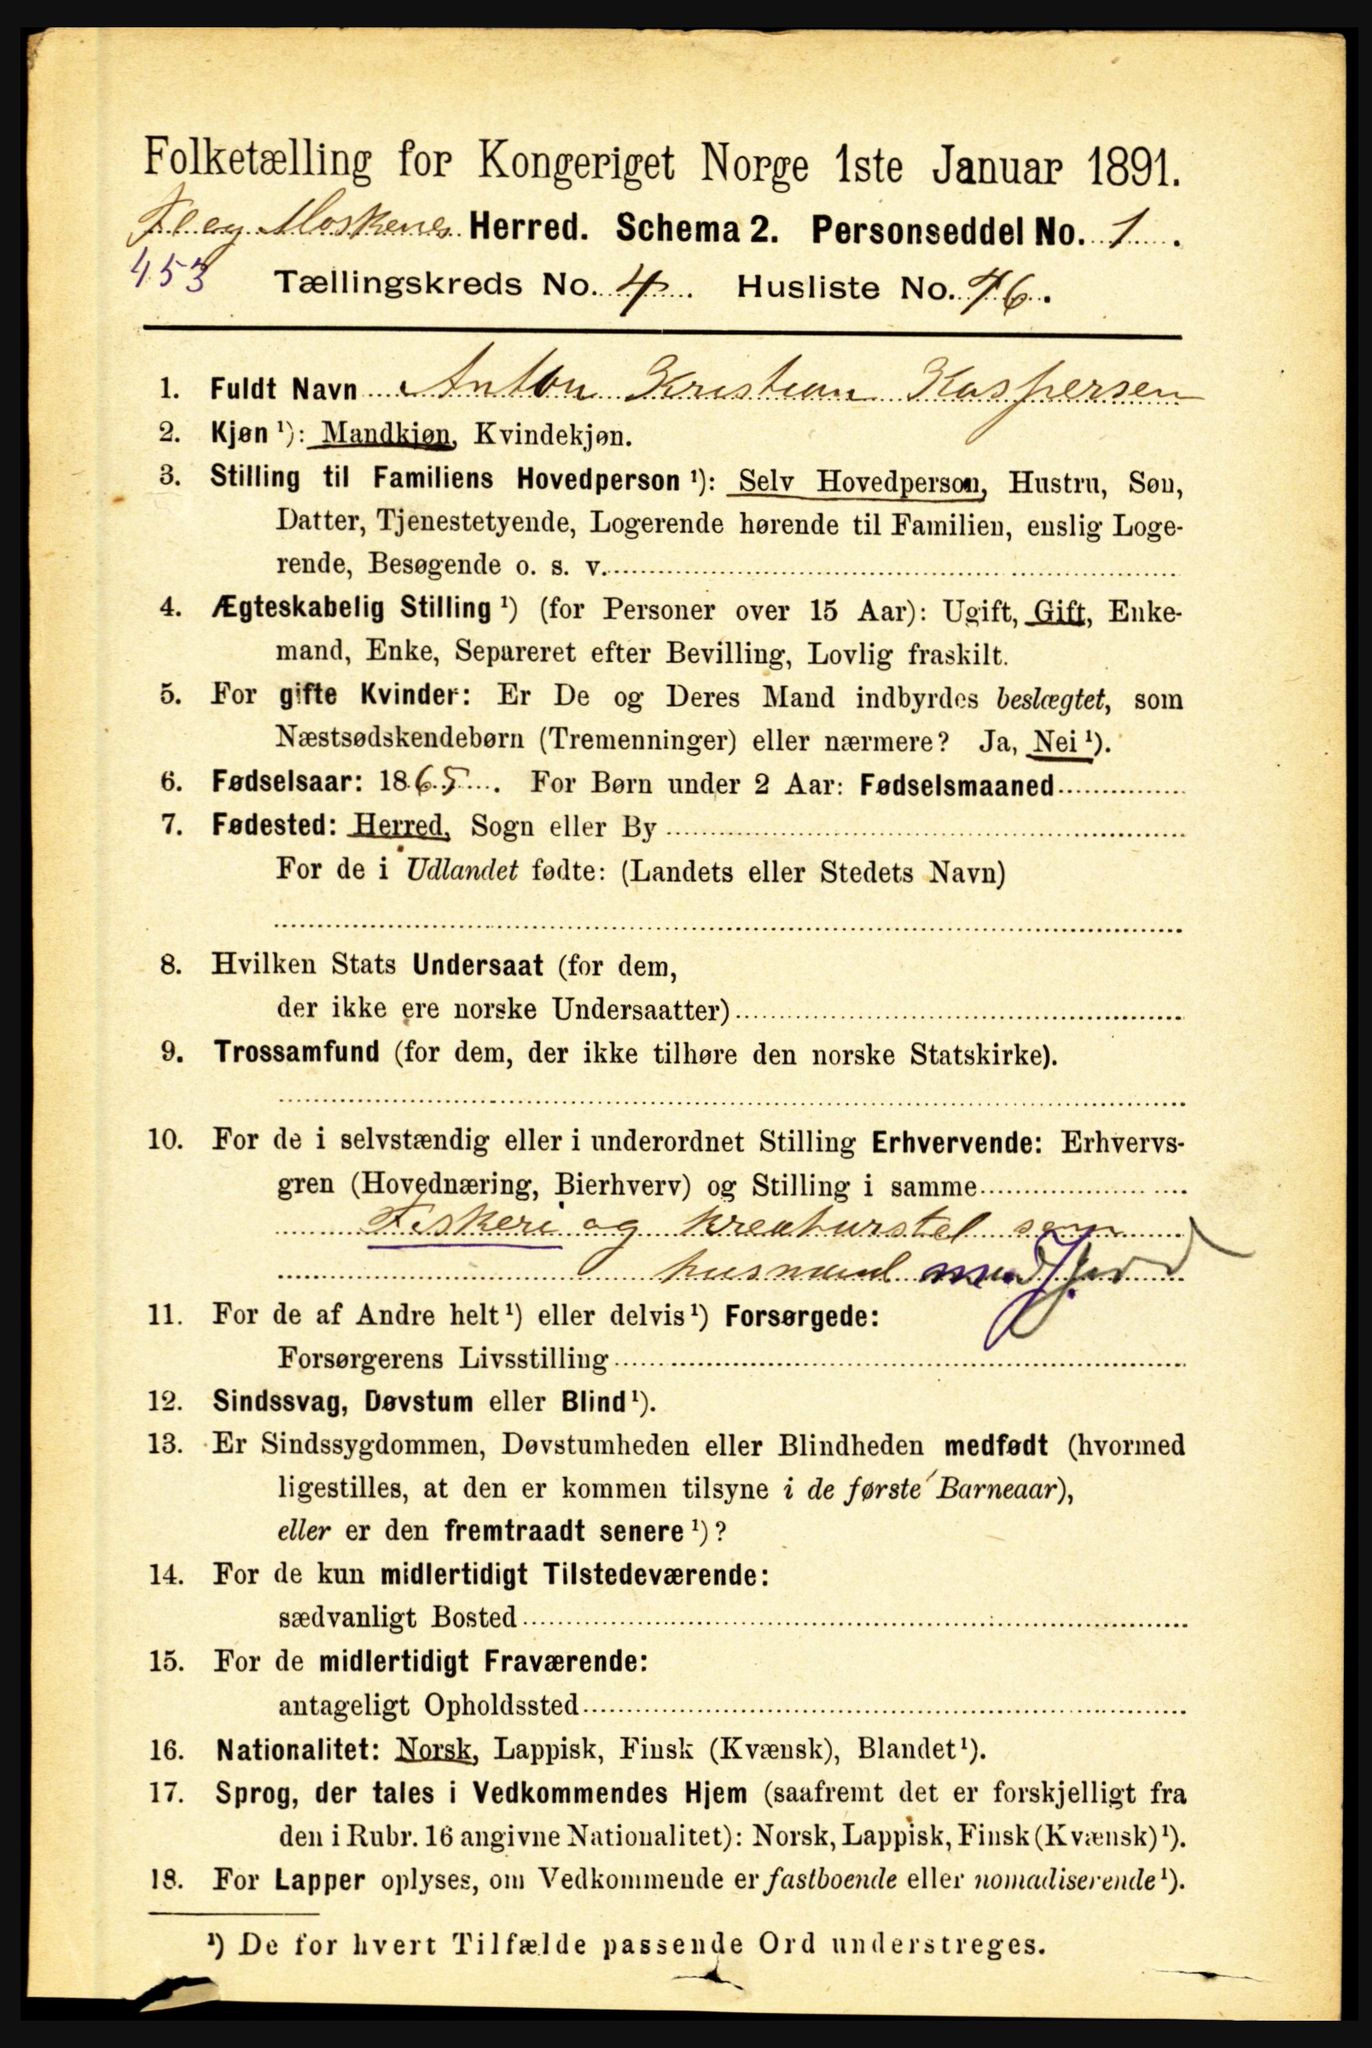 Folketælling for Kongeriget Norge 1ste Januar 1891.
Fl og Moskenes Herred. Schema 2. Personseddel No. 1.
453 Tællingskreds No. 4. Husliste No. 46.
1. Fuldt Navn Anton Kristian Kaspersen
2. Kjøn ¹): Mandkjøn, Kvindekjøn.
3. Stilling til Familiens Hovedperson ¹): Selv Hovedperson, Hustru, Søn,
Datter, Tjenestetyende, Logerende hørende til Familien, enslig Loge-
rende, Besøgende o. s. v.
4. Ægteskabelig Stilling ¹) (for Personer over 15 Aar): Ugift, Gift, Enke-
mand, Enke, Separeret efter Bevilling, Lovlig fraskilt.
5. For gifte Kvinder: Er De og Deres Mand indbyrdes beslægtet, som
Næstsødskendebørn (Tremenninger) eller nærmere? Ja, Nei ¹).
6. Fødselsaar: 1865. For Børn under 2 Aar: Fødselsmaaned
7. Fødested: Herred, Sogn eller By
For de i Udlandet fødte: (Landets eller Stedets Navn)
8. Hvilken Stats Undersaat (for dem,
der ikke ere norske Undersaatter)
9. Trossamfund (for dem, der ikke tilhøre den norske Statskirke).
10. For de i selvstændig eller i underordnet Stilling Erhvervende: Erhvervs-
gren (Hovednæring, Bierhverv) og Stilling i samme
Fiskeri og kreaturstel som
husmand med jord
11. For de af Andre helt ¹) eller delvis ¹) Forsørgede:
Forsørgerens Livsstilling
12. Sindssvag, Døvstum eller Blind ¹).
13. Er Sindssygdommen, Døvstumheden eller Blindheden medfødt (hvormed
ligestilles, at den er kommen tilsyne i de første Barneaar),
eller er den fremtraadt senere ¹)?
14. For de kun midlertidigt Tilstedeværende:
sædvanligt Bosted
15. For de midlertidigt Fraværende:
antageligt Opholdssted
16. Nationalitet: Norsk, Lappisk, Finsk (Kvænsk), Blandet ¹).
17. Sprog, der tales i Vedkommendes Hjem (saafremt det er forskjelligt fra
den i Rubr. 16 angivne Nationalitet): Norsk, Lappisk, Finsk (Kvænsk) ¹).
18. For Lapper oplyses, om Vedkommende er fastboende eller nomadiserende ¹).
¹) De for hvert Tilfælde passende Ord understreges.